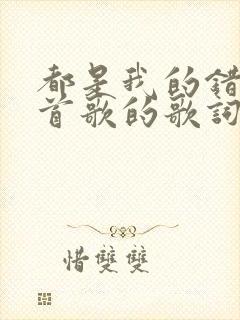 都是我的错
首歌的歌词
惜双双